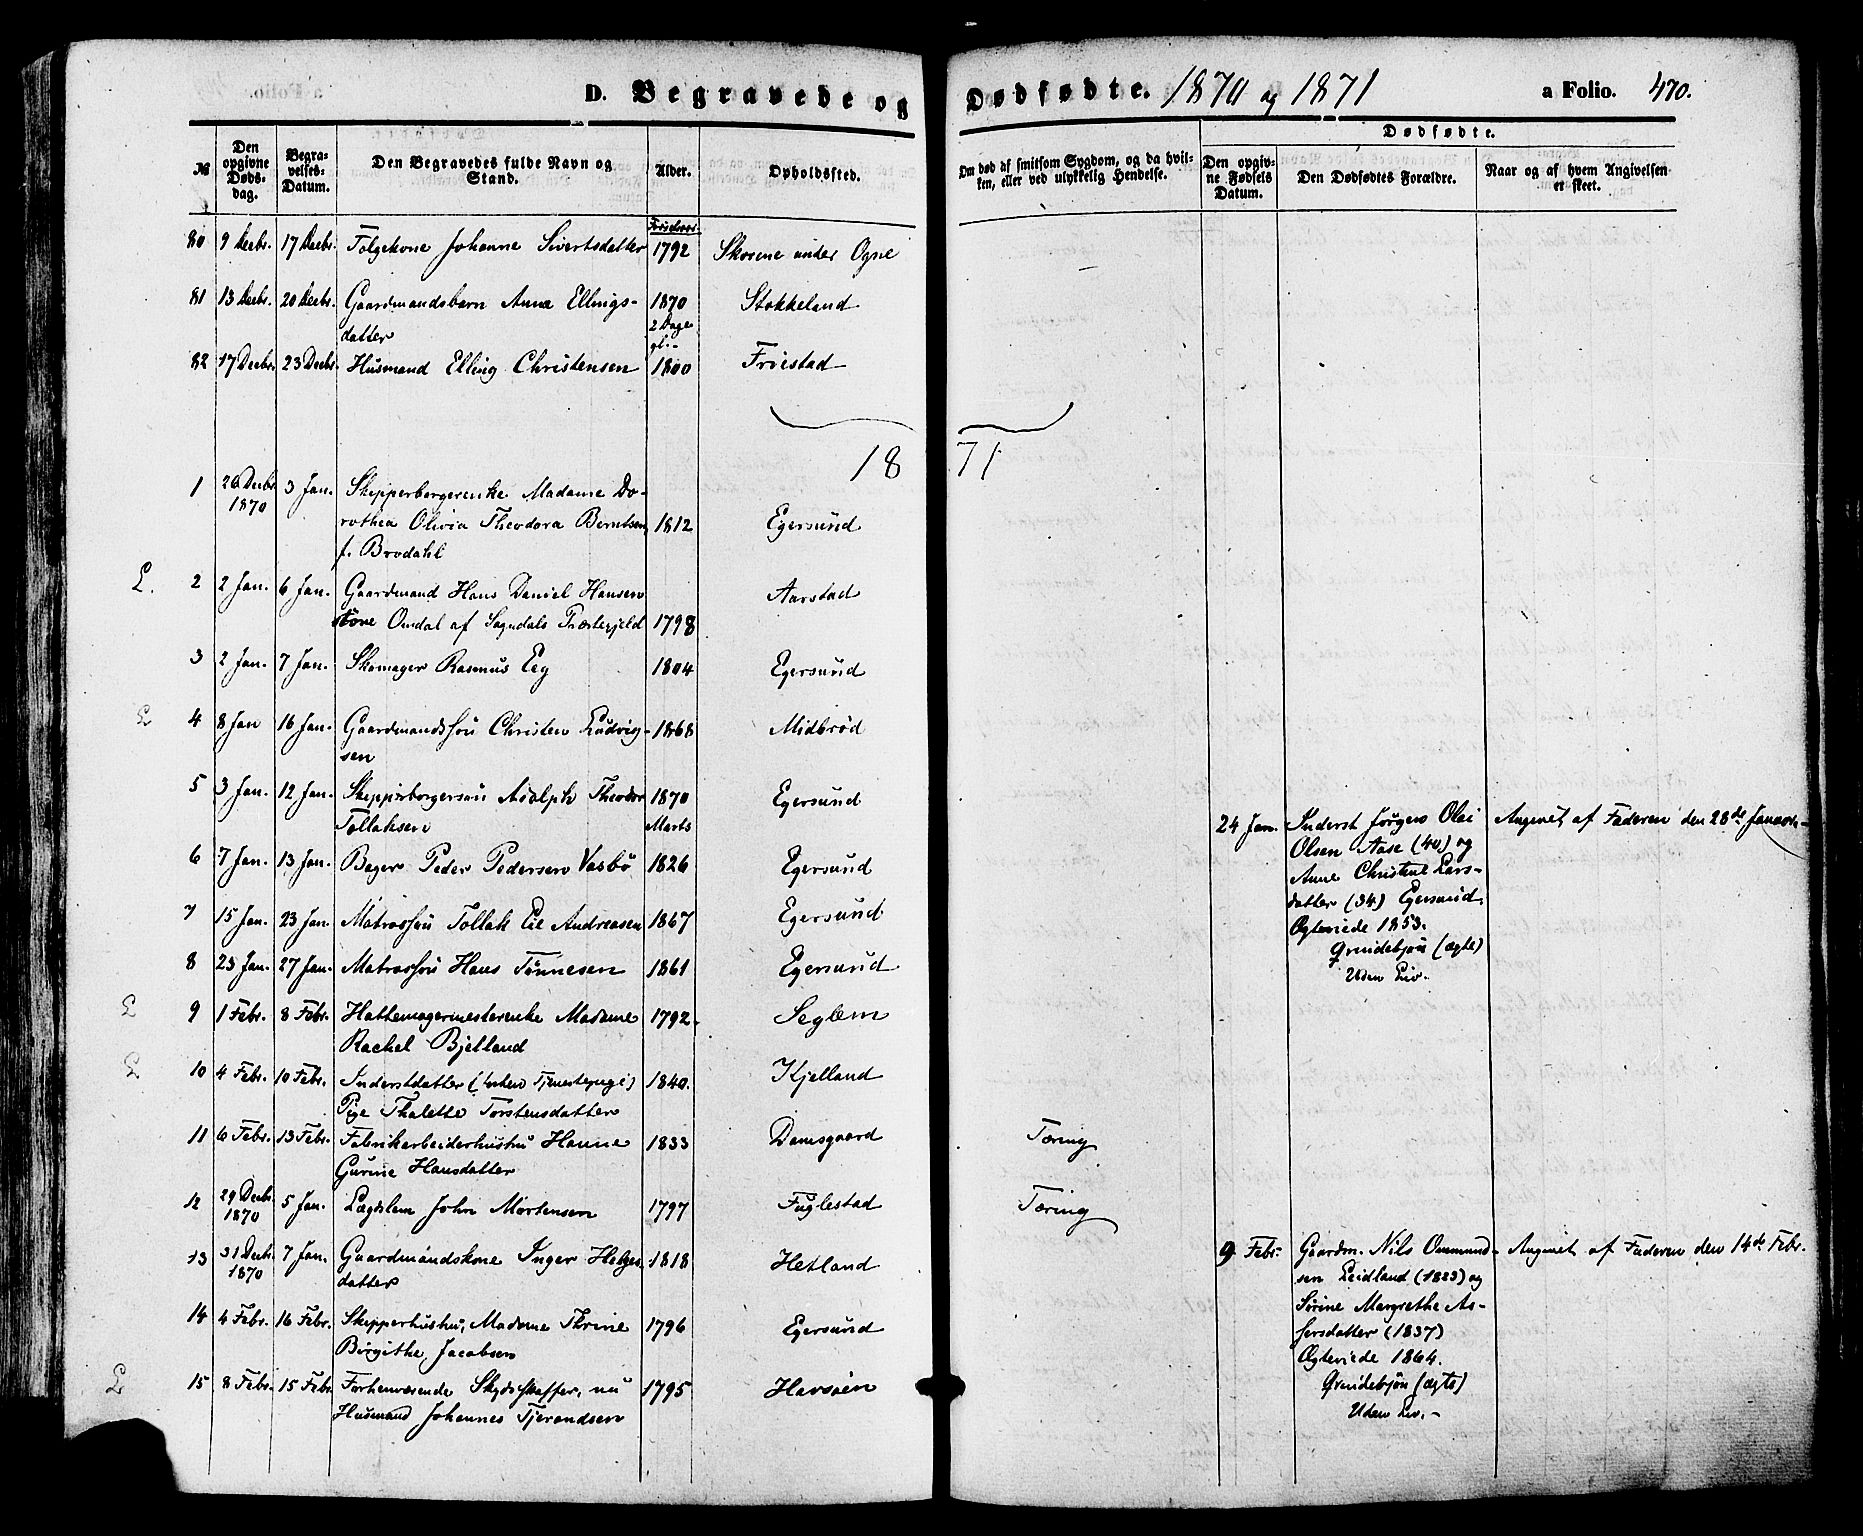 D. Begravede og Dødfødte. 1870 og 1871 a Folio. 470.
Dødfødte.
№ Den opgivne Dødsdag. Begravelses-Datum. Den Begravedes fulde Navn og Stand. Alder. Opholdssted. Om død af smitsom Sygdom, og da hvilken, eller ved ulykkelig Hendelse. Den opgivne Fødsels Datum. Den Dødfødtes Forældre. Naar og af hvem Angivelsen er skeet.
80 9 Decbr. 17 Decbr. Følgekone Johanne Sivertsdatter 1792 Skosene under Ogne
81 13 Decbr. 20 Decbr. Gaardmandsbarn Anna Ellings- 1870 Stokkeland
datter 2 Dage
gl.-
82 17 Decbr. 23 Decbr. Husmand Elling Christensen 1800 Friestad
1871
1 26 Decbr. 3 Jan. Skipperborgerenke Madame Do-
1870 rothea Olivia Theodora Berntsen, 1812 Egersund
f. Brodahl
L. 2 2 Jan. 6 Jan. Gaardmand Hans Daniel Hansen Aarstad
Omdal af Sogndals Præstegjeld 1798
3 2 Jan. 7 Jan. Skomager Rasmus Eeg 1804 Egersund
L 4 8 Jan 16 Jan. Gaardmandssøn Christen Ludvig- 1868 Midbrød
sen
5 3 Jan. 12 Jan. Skipperborgersøn Adolph Theodor 1870 Egersund
Tollaksen Marts
24 Jan. Inderst Jørgen Olai Angivet af Faderen den 28de Januar
Olsen Aase (40) og
6 7 Jan. 13 Jan. Bager Peder Pedersen Vasbø 1826 Egersund
Anne Christine Lars-
datter (34) Egersund,
7 15 Jan. 23 Jan. Matrossøn Tollak Eie Andreasen 1867 Egersund
Ægteviede 1853.
Qvindekjøn (ægte)
8 23 Jan. 27 Jan. Matrossøn Hans Tønnesen 1861 Egersund
Uden Liv.
L 9 1 Febr. 8 Febr. Hattemagermesterenke Madame 1792 Seglem
Rachel Bjelland
L 10 4 Febr. 10 Febr. Inderstdatter (forhen Tjenestepige) 1840. Kjelland
Pige Thalette Torstensdatter
11 6 Febr. 13 Febr. Fabrikarbeiderhustru Hanne 1833 Damsgaard Tæring
Gurine Hansdatter
12 29 Decbr. 5 Jan. Lægdslem John Mortensen 1797 Fuglestad Tæring
1870
13 31 Decbr. 7 Jan. Gaardmandskone Inger Helges- 1818 Hetland
1870 datter
9 Febr. Gaardm. Nils Ommund- Angivet af Faderen den 14de Febr.
sen Leidland (1823) og
Sørine Margrethe As-
14 4 Febr. 16 Febr. Skipperhustru, Madame Thrine 1796 Egersund
Birgithe Jacobsen
sersdatter (1837)
Ægteviede 1864.
L 15 8 Febr. 15 Febr. Forhenværende Skydsskaffer, nu 1795 Havsøen
Husmand Johannes Tjerandsen
Qvindekjøn (ægte)
Uden Liv.-